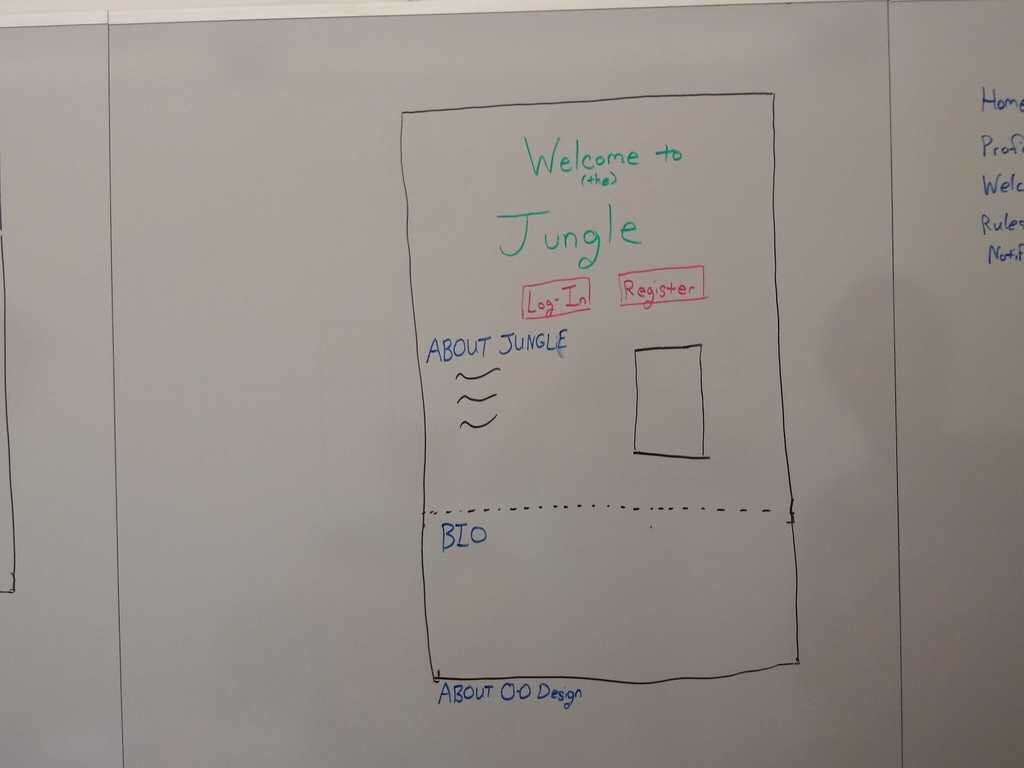 Welcome to
(the)
Jungle
Log-In
Register
ABOUT JUNGLE
BIO
ABOUT O-O Design
Home
Rules